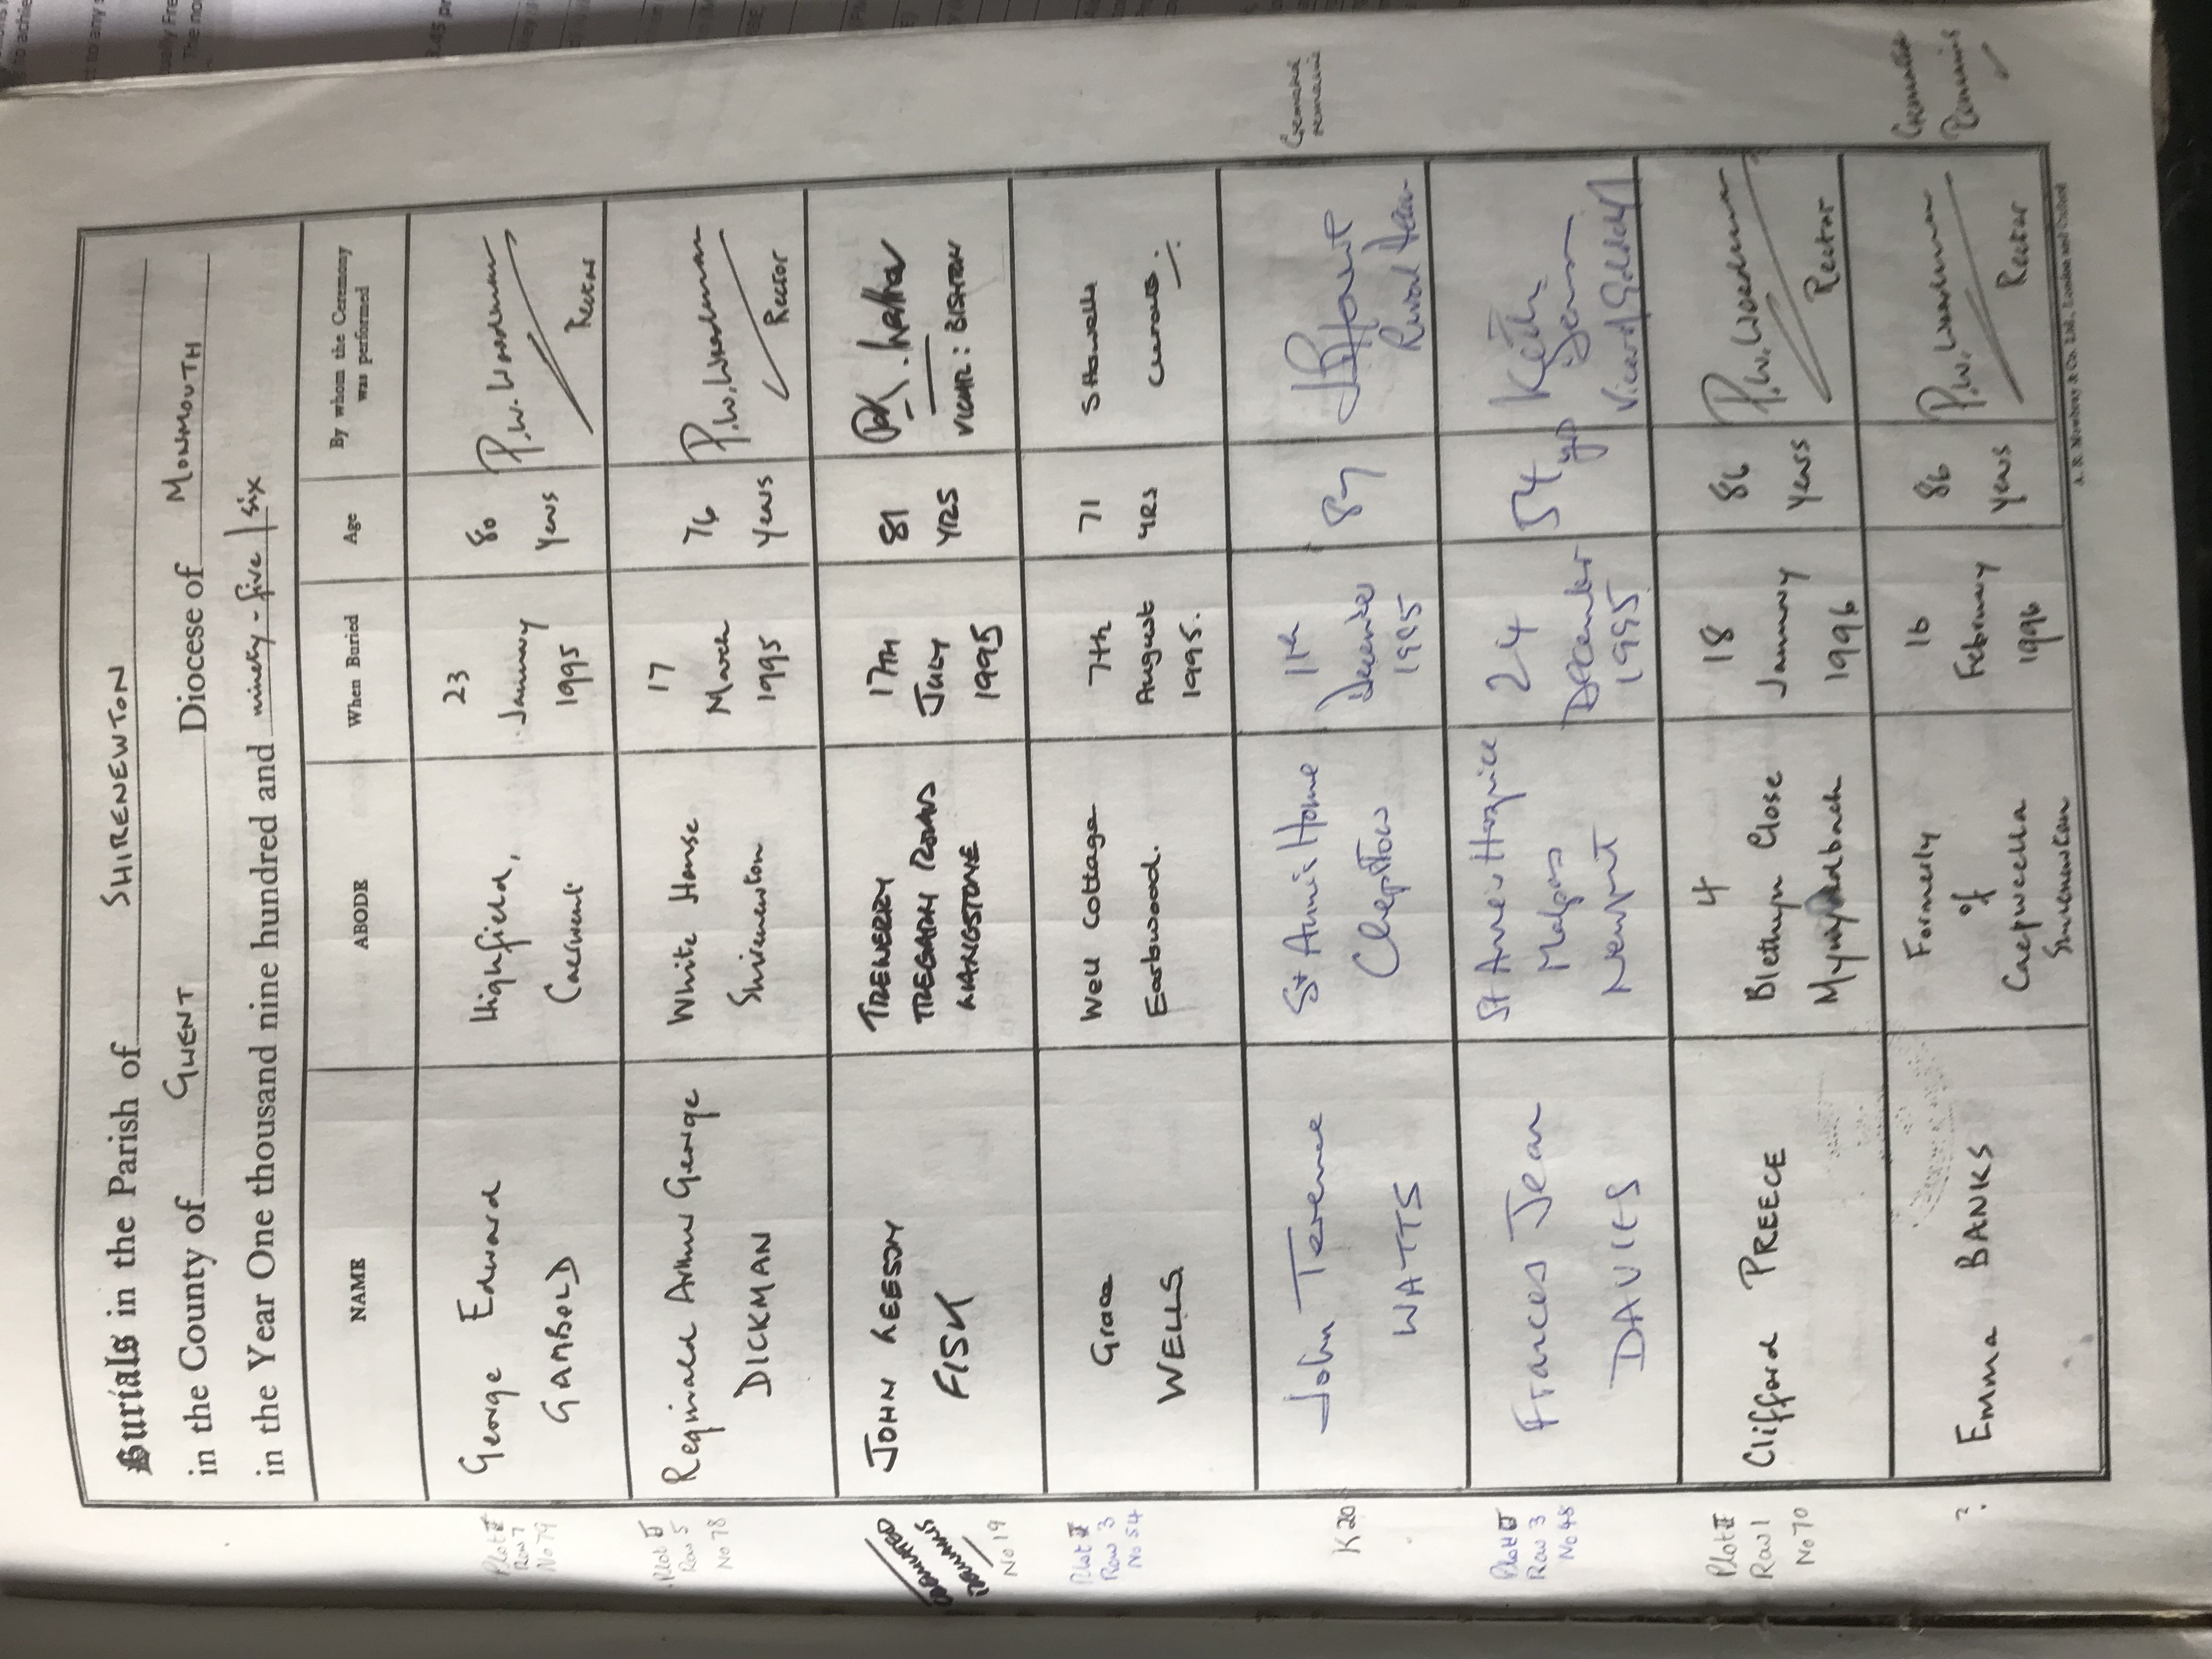 Burials in the Parish of SHIRENEWTON
in the County of GWENT Diocese of MONMOUTH
in the Year One thousand nine hundred and ninety-five / six
NAME ABODE When Buried Age By whom the Ceremony was performed
Plot II
Row 7
No 79
George Edward
GAMBOLD
Highfield,
Caerwent
23
January
1995
80
Years
P.W. Woodman
Rector
Plot II
Row 5
No 78
Reginald Arthur George
DICKMAN
White House
Shirenewton
17
March
1995
76
Years
P.W. Woodman
Rector
CREMATED
REMAINS
No 19
JOHN
FISK
TREGARN ROAD
LANGSTONE
17TH
JULY
1995
81
YRS
VICAR: BISHTON
Plot II
Row 3
No 54
Grace
WELLS
Well Cottage
Earlswood.
7th
August
1995.
71
YRS
K 20
John Terence
WATTS
St Annes Home
Chepstow
11th
December
1995
87
Rural Dean
Cremated
remains
Plot II
Row 3
No 48
Frances Jean
DAVIES
St Annes Hospice
Malpas
Newport
24
December
1995
54
yrs
Keith
Vicar of
Plot II
Row 1
No 70
Clifford PREECE
4
Blethyn Close
Mynyddbach
18
January
1996
86
Years
P.W. Woodman
Rector
?
Emma BANKS
Formerly
of
Caepwcella
Shirenewton
16
February
1996
86
Years
P.W. Woodman
Rector
Cremated
Remains
A. R. Mowbray & Co. Ltd., London and Oxford